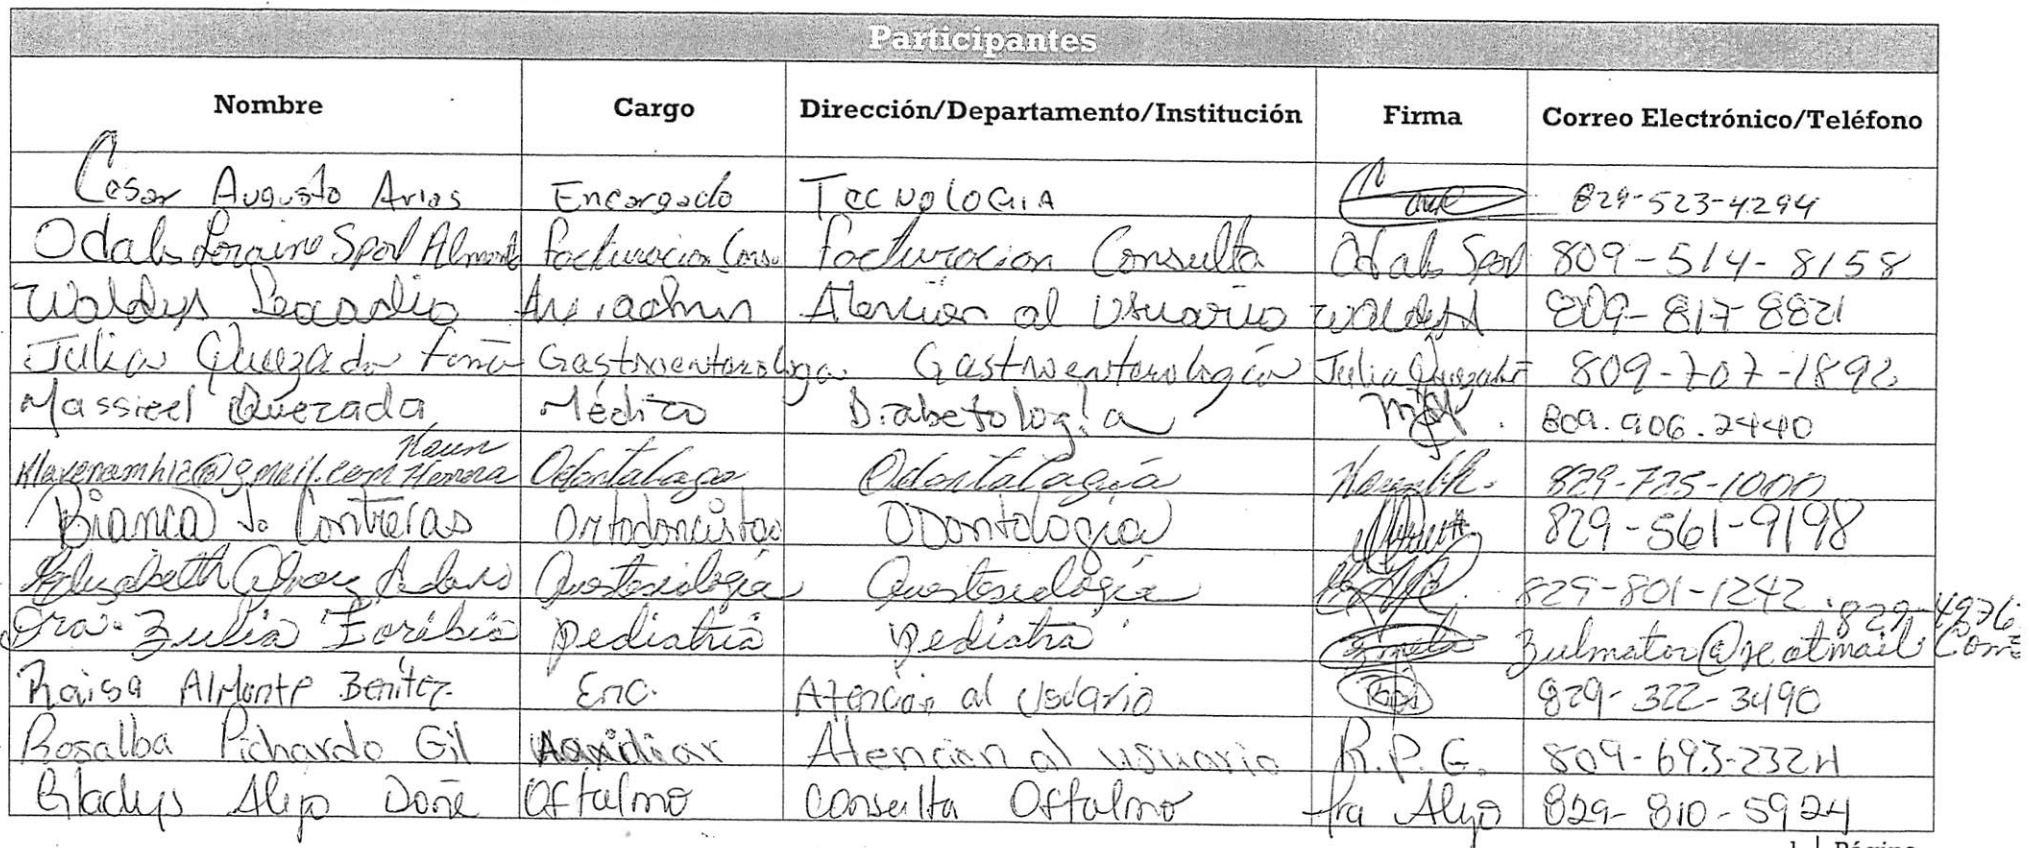 Participantes
Nombre Cargo Dirección/Departamento/Institución Firma Correo Electrónico/Teléfono
Cesar Augusto Arias Encargado TECNOLOGIA 829-523-4294
Odalis Loraine Almonte facturacion Cons. facturacion Consulta 809-514-8158
Waldys Leocadio Atencion al Usuario 809-817-8821
Julia Quezada Gastroenterologa Gastroenterología Julia Quezada 809-707-1892
Massieel Quezada Médico Diabetología 809.906.2440
Herrera Odontologo Odontología 829-725-1000
Bianca J. Contreras Ortodoncista Odontología 829-561-9198
Elizabeth 829-801-1242
Dra. Zulia Pediatria Pediatra
Raisa Almonte Benitez Enc. Atención al Usuario 829-322-3490
Rosalba Pichardo Gil Auxidiar Atencion al usuario R.P.G. 809-693-2324
Gladys Alejo Doñe Oftalmo Consulta Oftalmo Alejo 829-810-5924
1 | Página